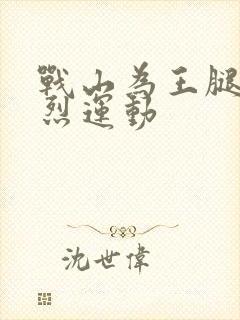 戰山為王腿
烈運動
沈世偉